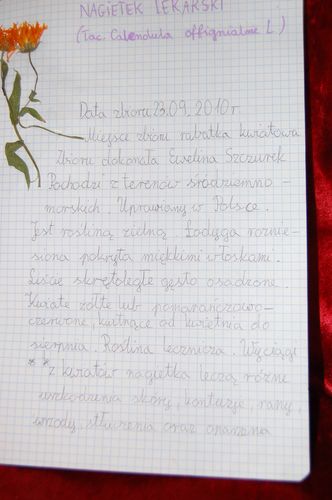 NAGIETEK LEKARSKI
(Łac. Calendula offignialme L.)
Data zbioru 23.09.2010 r
Miejsce zbioru rabatka kwiatowa
Zbioru dokonała Ewelina Szczurek
Pochodzi z terenów śródziemno-
morskich. Uprawiany w Polsce.
Jest rośliną zielną. Łodyga roznie-
siona pokryta miękkimi włoskami.
Liście skrętoległe gęsto osadzone.
Kwiate żółte lub pomarańczowo-
czerwone, kwitnące od kwietnia do
sierpnia. Roślina lecznicza. Wyciągi
z kwiatów nagietka leczą różne
uszkodzenia skóry, kontuzje, rany,
wrzody, stłuczenia oraz oparzenia